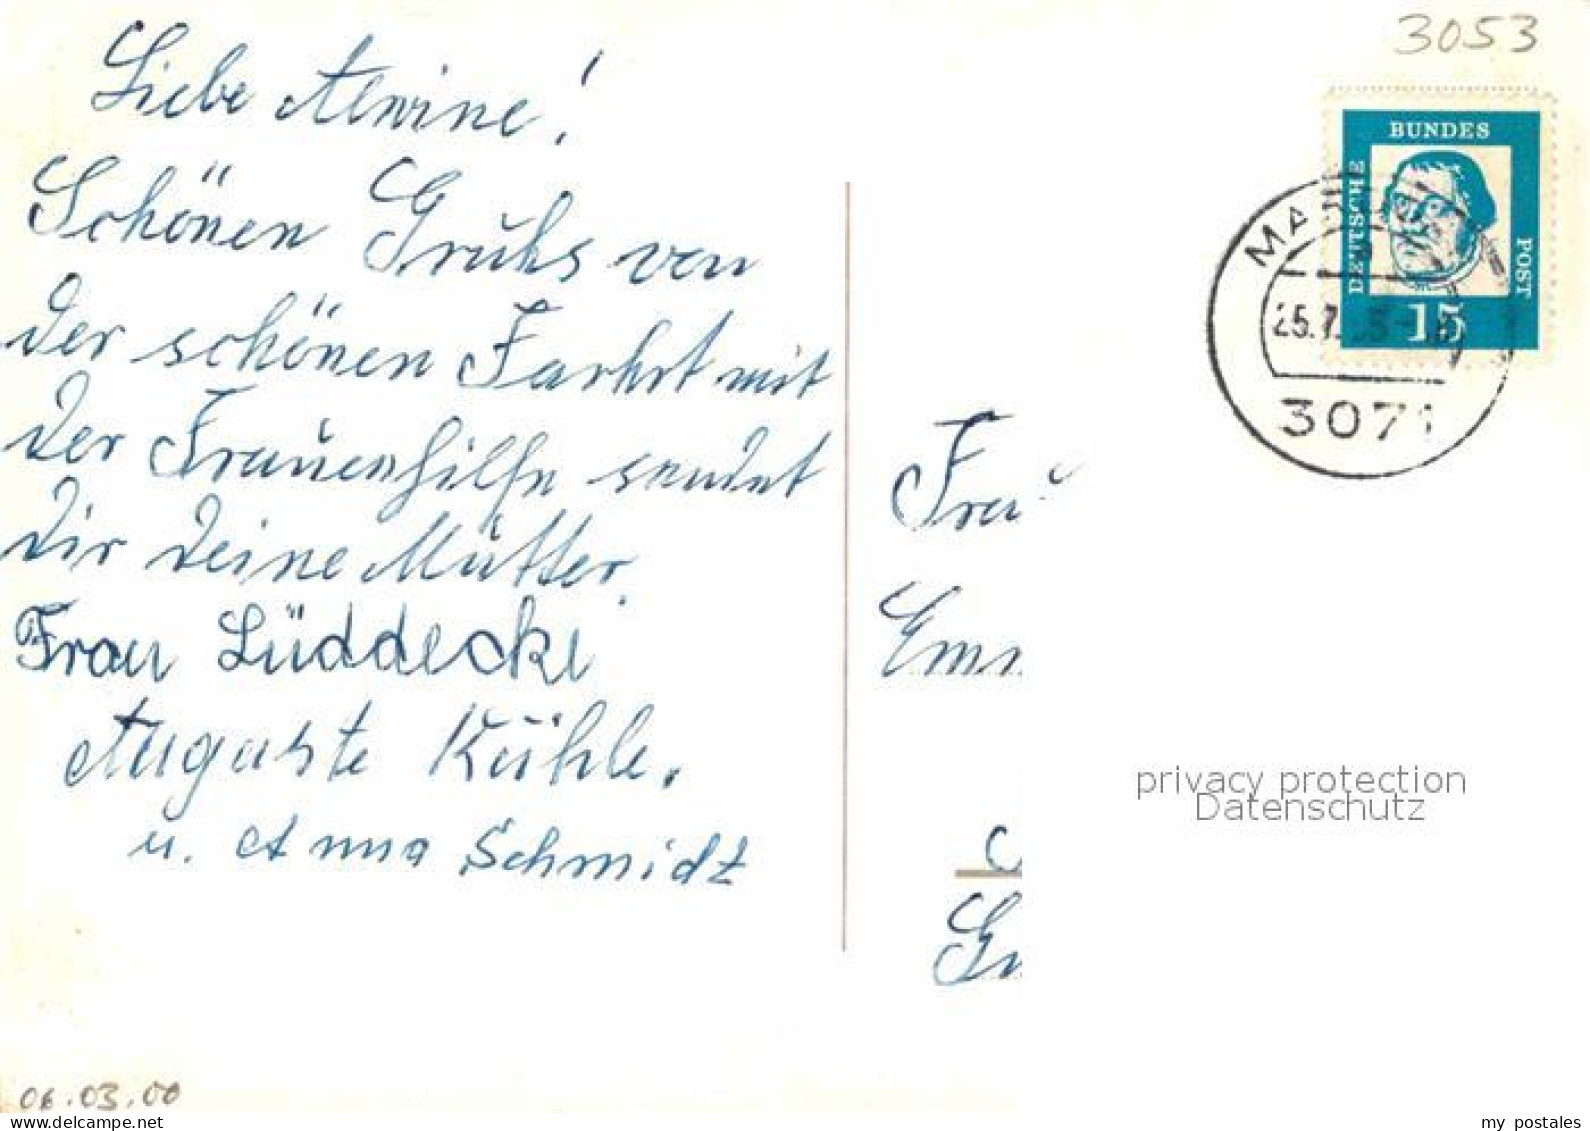 3053
Liebe Alwine!
Schönen Gruhs von
der schönen Farhrt mit
der Frauenhilfe sendet
dir deine Mutter.
Frau Lüddecke
Auguste Kühle.
u. Anna Schmidt
DEUTSCHE
BUNDES
POST
15
25.7.
3071
Frau
privacy protection
Datenschutz
06.03.00
www.delcampe.net
my_postales